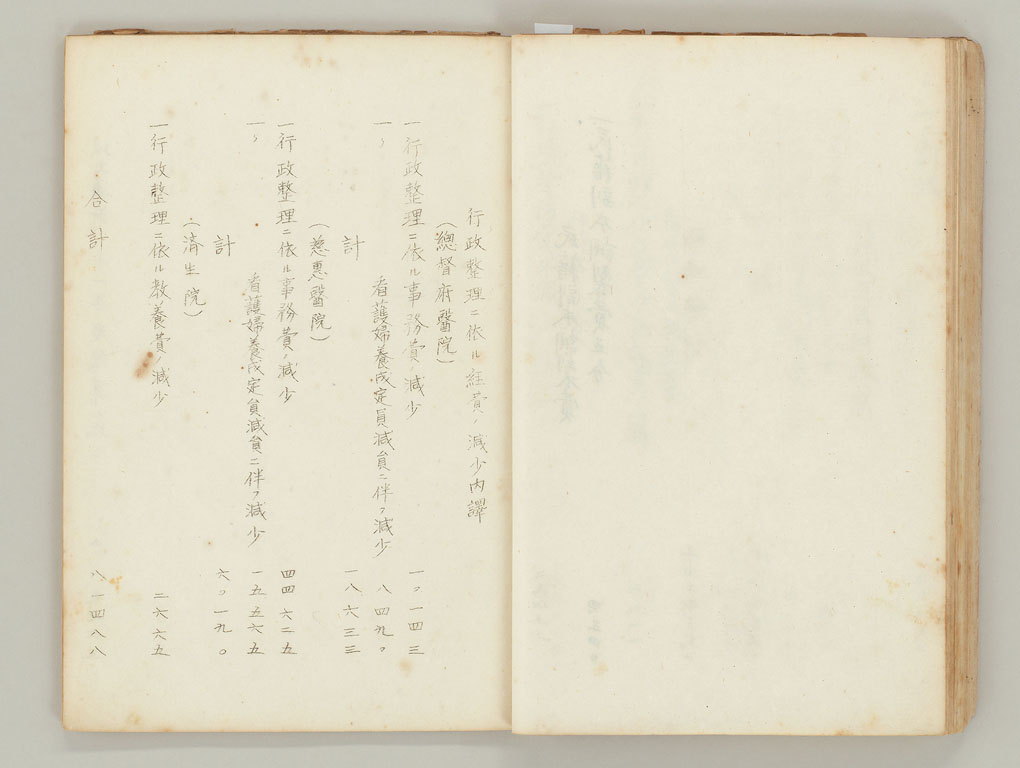 行政整理ニ依ル経費ノ減少内譯
(總督府醫院)
一行政整理ニ依ル事務費ノ減少 一〇一四三
一、看護婦養成定員減員ニ伴フ減少 八四九〇
計 一八六三三
(慈惠醫院)
一行政整理ニ依ル事務費ノ減少 四四六二五
一、看護婦養成定員減員ニ伴フ減少 一五五六五
計 六〇一九〇
(済生院)
一行政整理ニ依ル教養費ノ減少 二六六五
合計 八一四八八